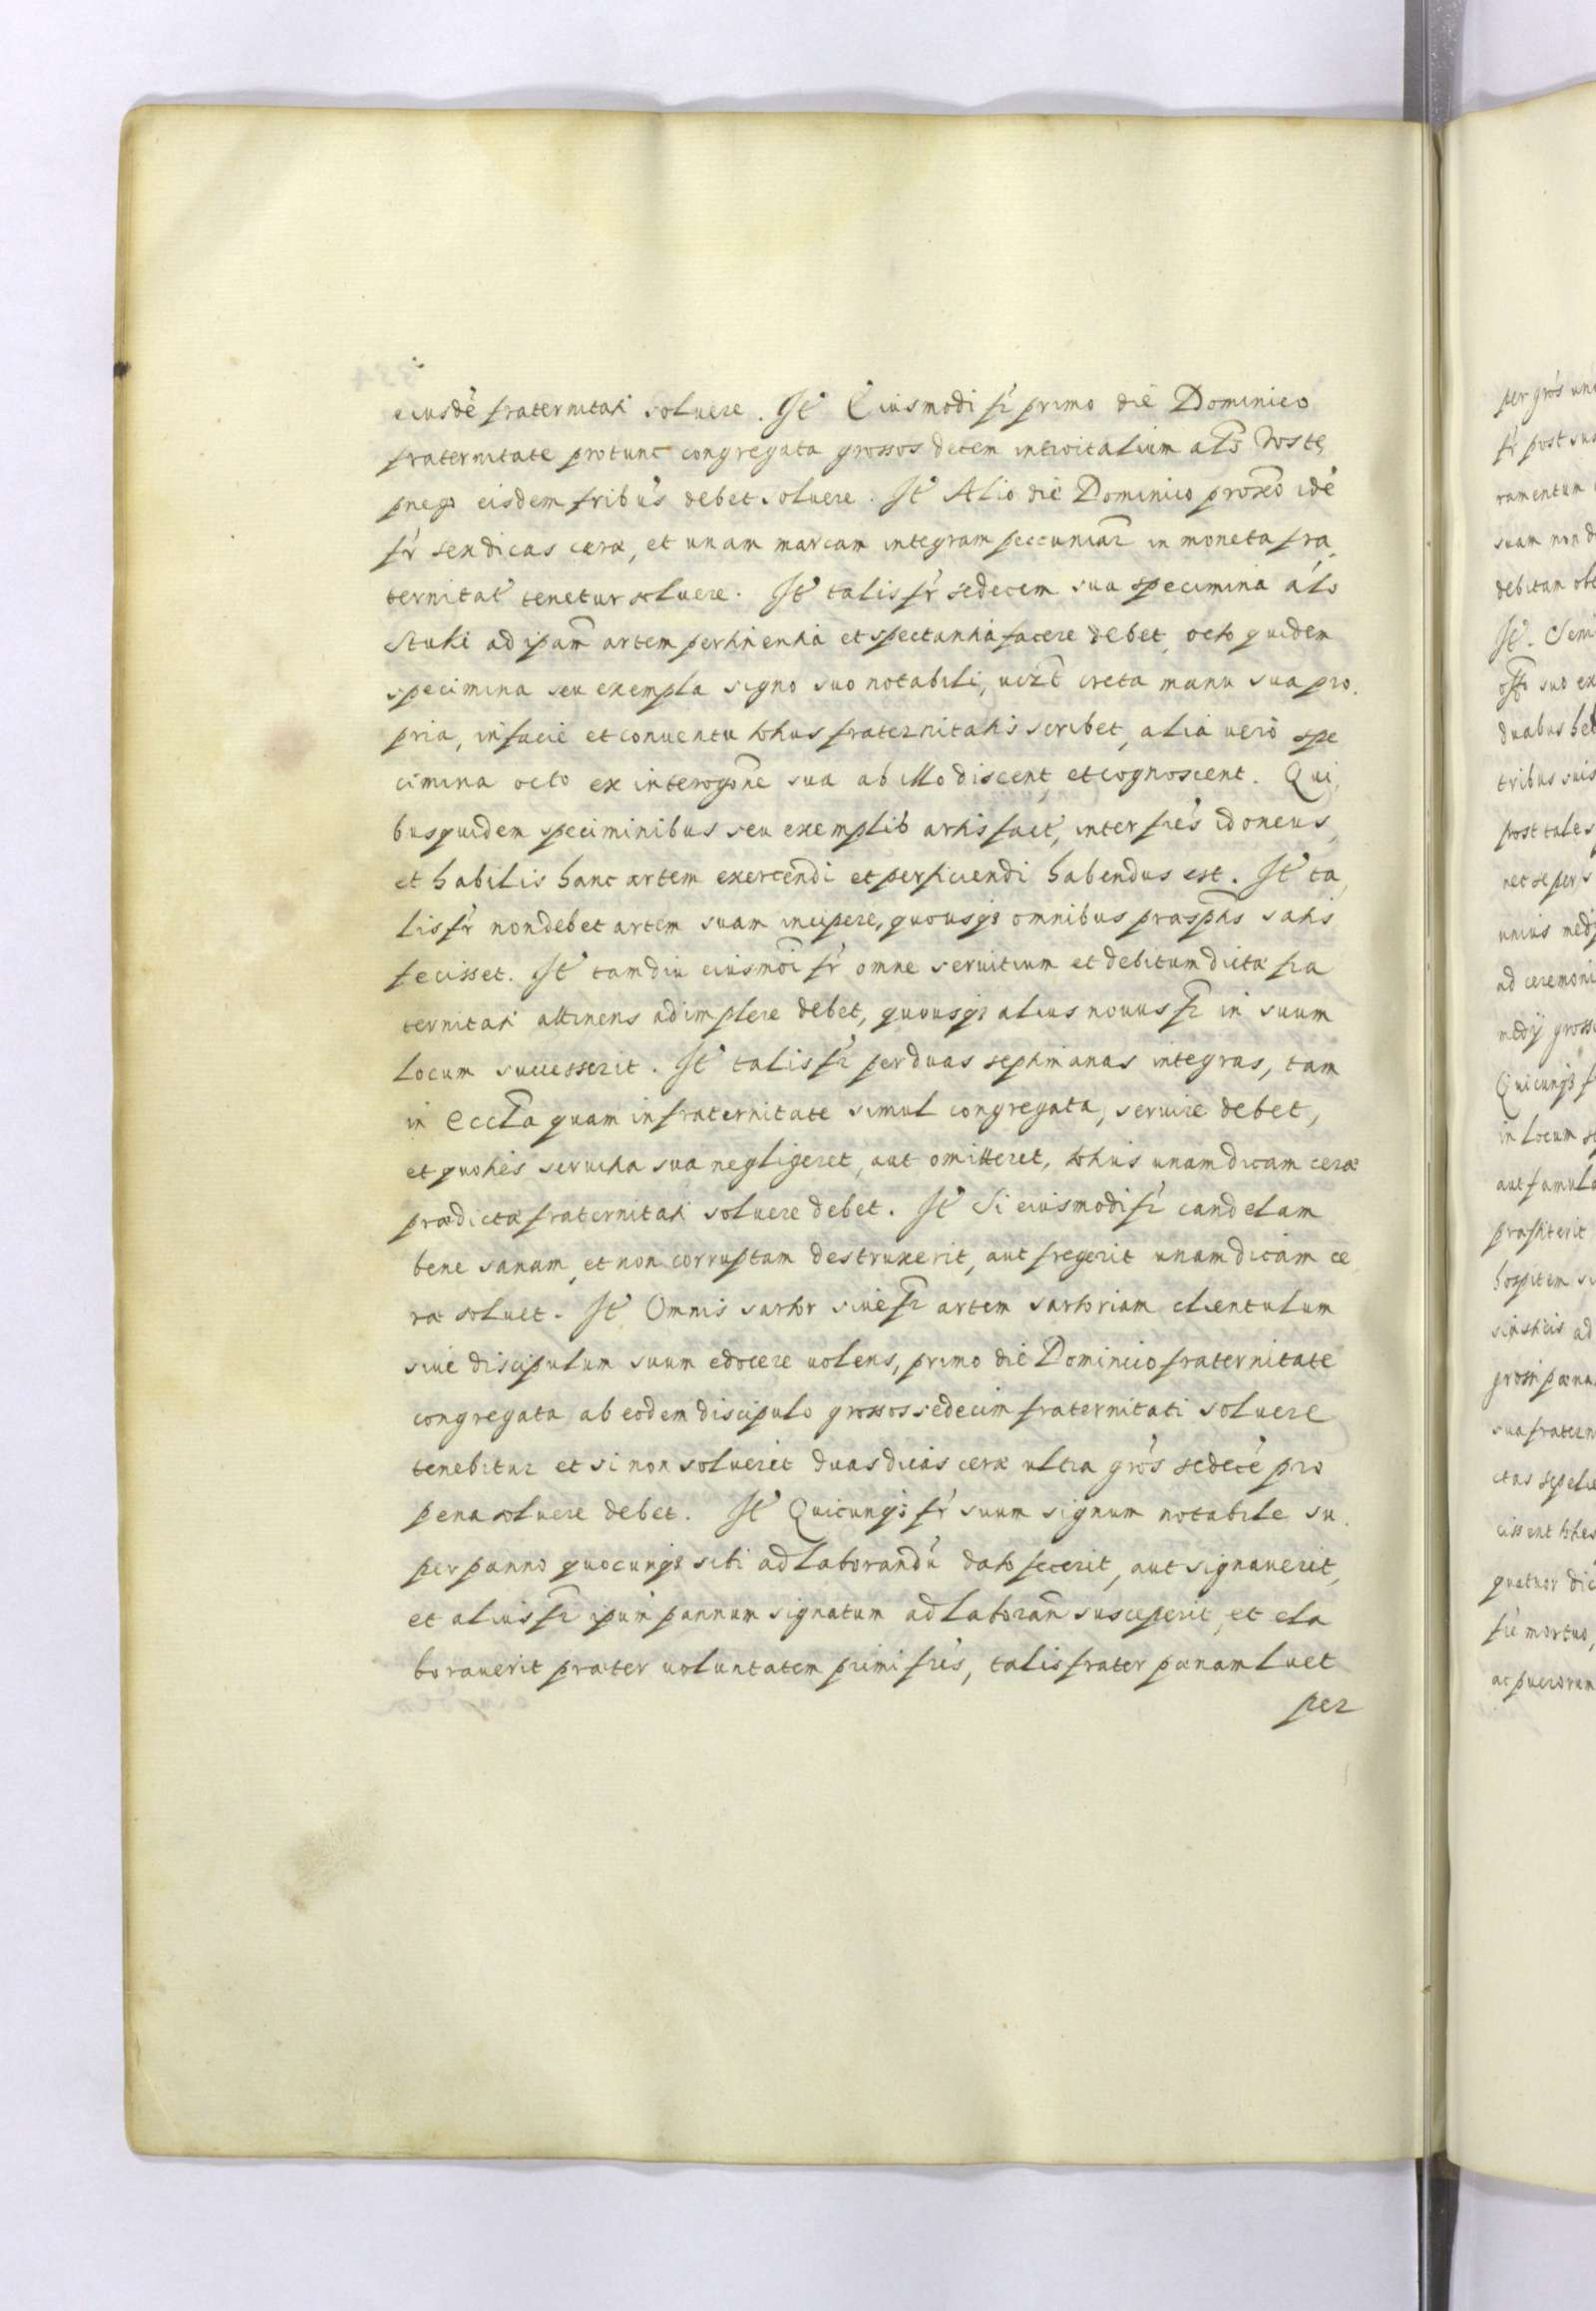 eiusdē fraternitati soluere. It Eiusmodi fr primo die Dominico
fraternitate protunc congregata grossos decem introitalium als Wste,
pnego eisdem fribus debet soluere. It Alio die Dominico proxo idē
fr sex dicas caerae, et unam marcam integram peccuniar in moneta fra,
ternitat tenetur soluere. It talis fr sedecem sua specimina als
Stuki ad ipam artem pertinentia et spectantia facere debet, octo quidem
specimina seu exempla signo suo notabili, uizt creta manu sua pro.
pria, in facie et conuentu totius fraternitatis scribet, alia uero spe
cimina octo ex interogone sua ab illo discent, et cognoscent. Qui,
bus quidem speciminibus seu exemplib artis fact, inter fres idoneus,
et habilis hanc artem exercendi et perficiendi habendus est. It ta,
lis fr non debet artem suam incipere, quousq3 omnibus prasptis satis
fecisset. It tamdiu eiusmoi fr omne seruitium et debitum dictae fra
ternitati attinens adimplere debet, quousq3 alius nouus fr in suum
locum successerit. It talis fr per duas septimanas integras, tam
in Eccla quam in fraternitate simul congregata, seruire debet,
et quoties seruitia sua negligeret, aut omitteret, toties unam dicam cerae
praedictae fraternitati soluere debet. It Si eiusmodi fr candelam
bene sanam, et non corruptam destruxerit, aut fregerit unam dicam ce
rae soluet. It Omnis sartor siue fr artem sartoriam clientulum
siue discipulum suum edocere uolens, primo die Dominico fraternitate
congregata ab eodem discipulo grossos sedecim fraternitati soluere
tenebitur et si non soluerit duas dicas cerae ultra gros sedecē pro
pena soluere debet. It Quicunq3 fr suum signum notabile su.
per panno quocunq3 sibi ad laborandū dato fecerit, aut signauerit,
et alius fr ipum pannum signatum ad laboran susceperit, et ela
borauerit praeter uoluntatem primi fris, talis frater paenam luet
per